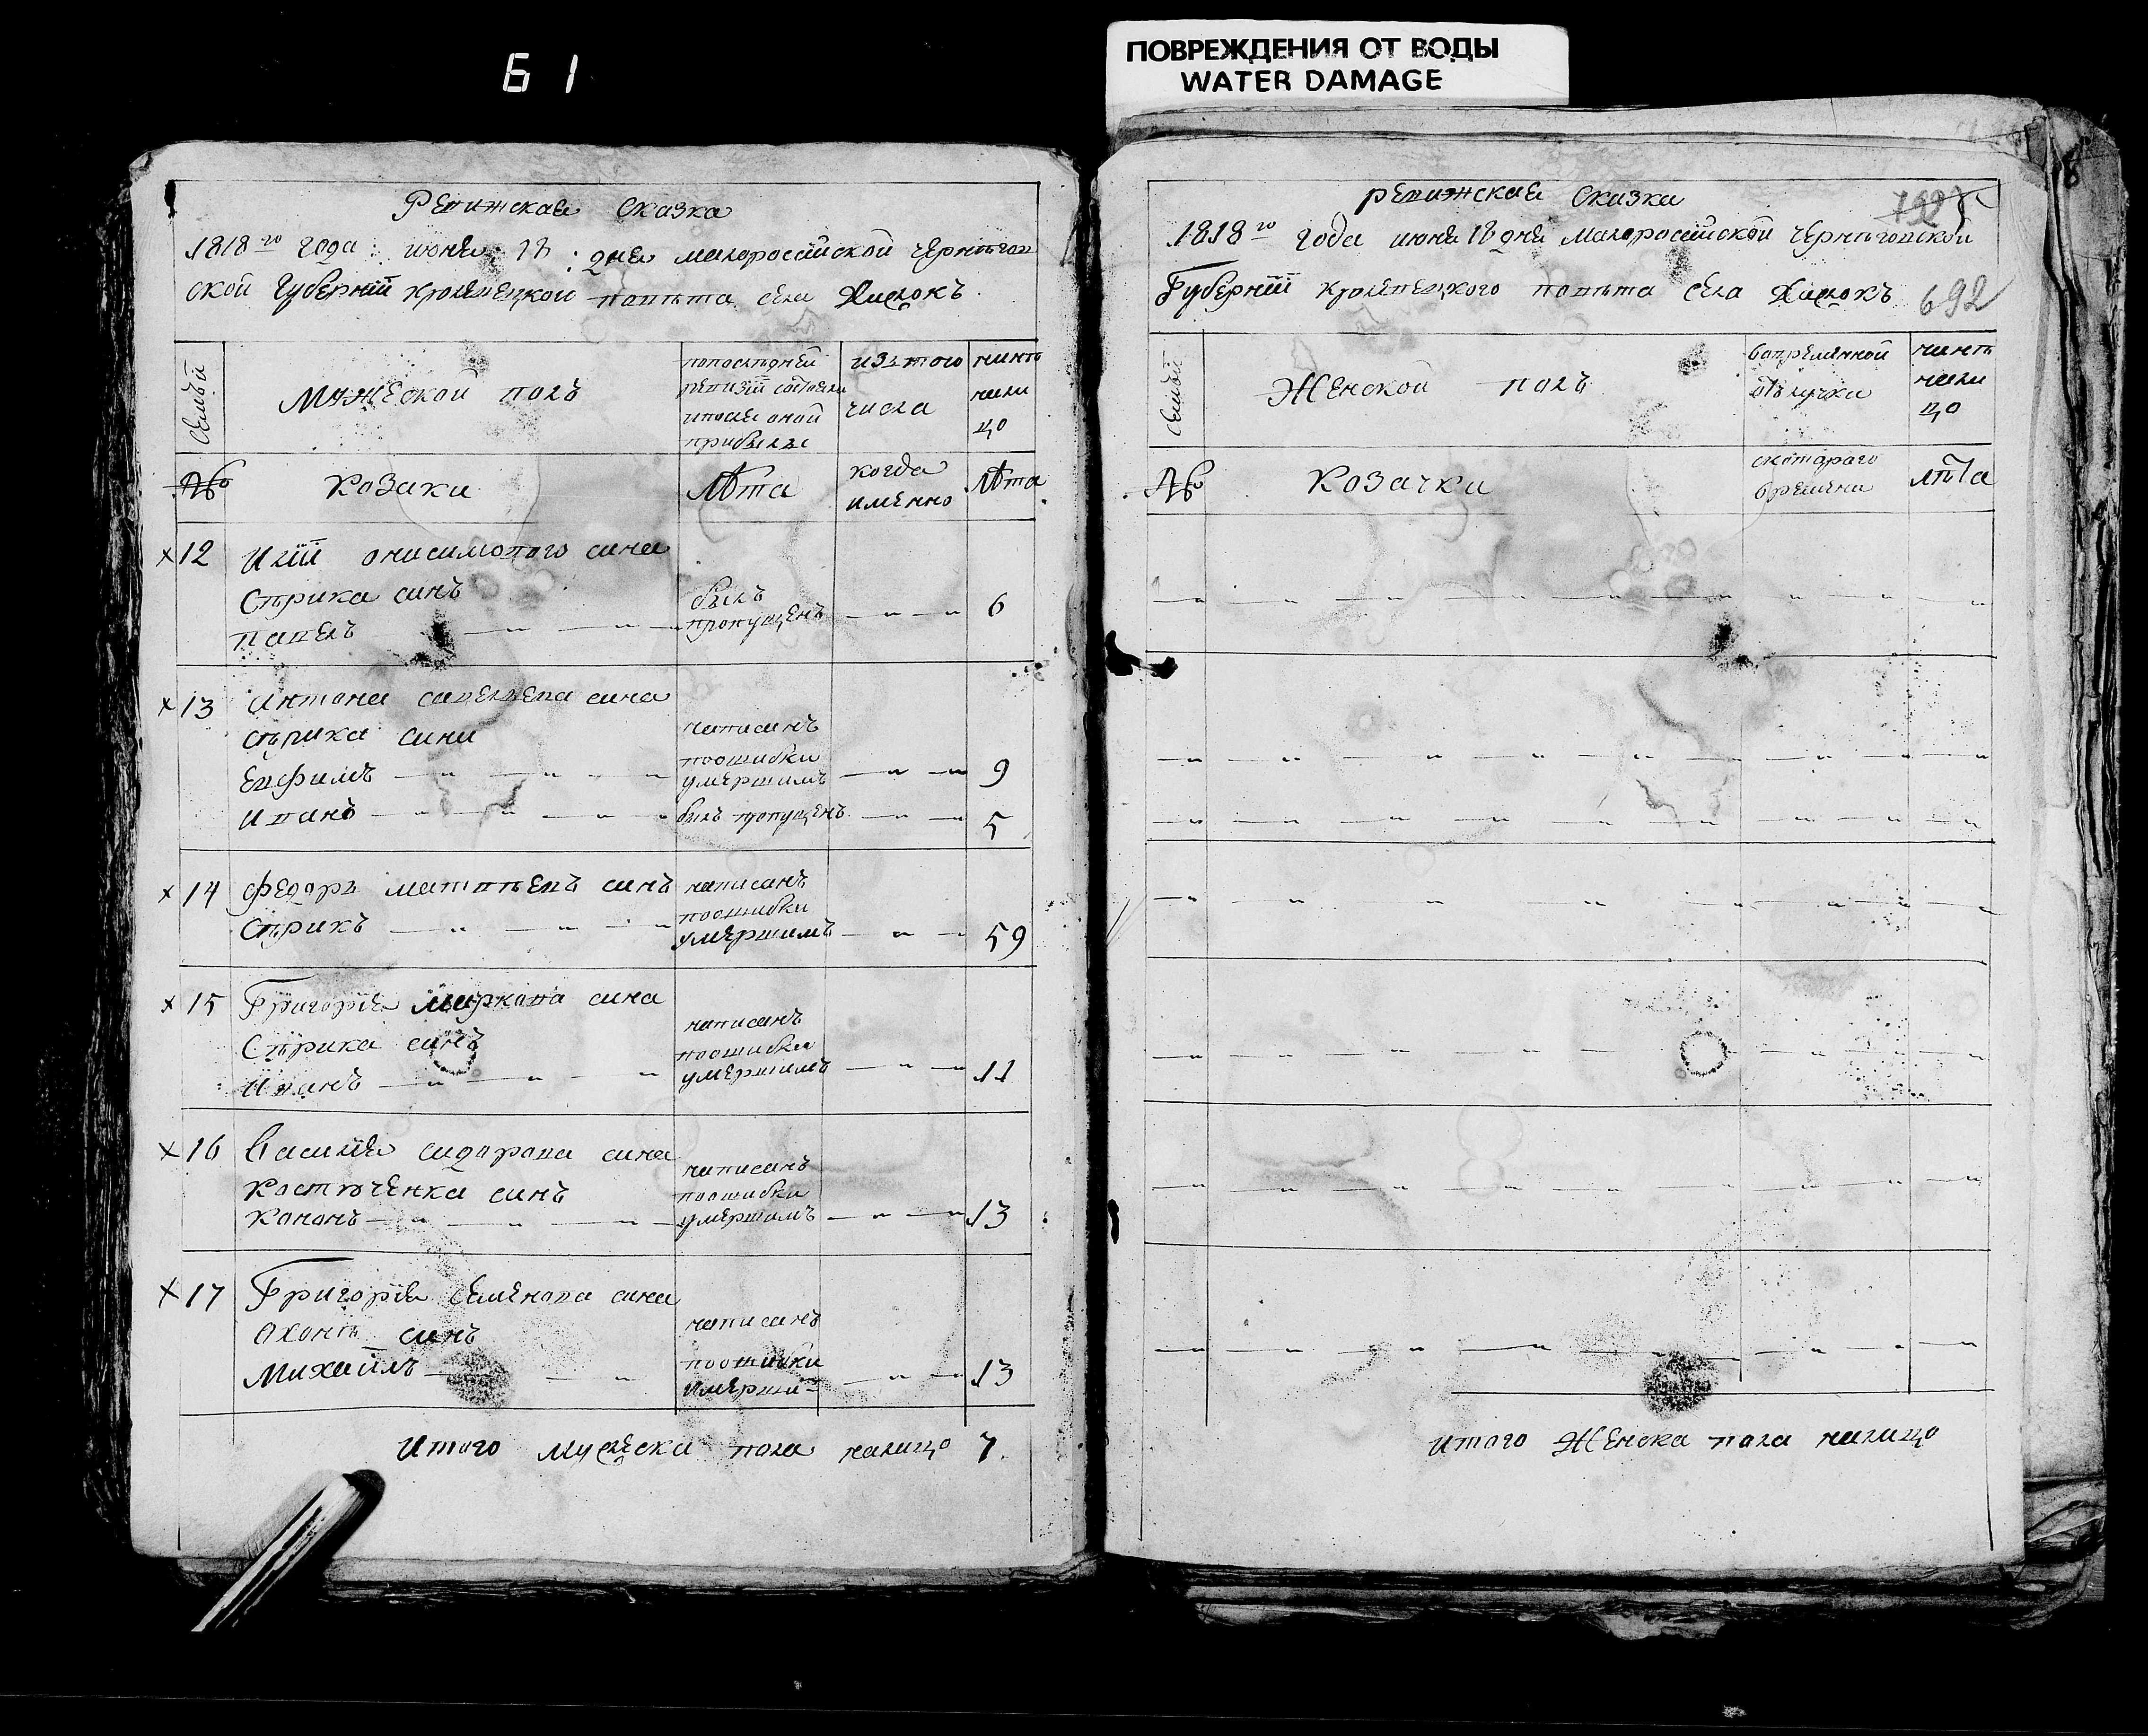 61
ПОВРЕЖДЕНИЯ ОТ ВОДЫ
WATER DAMAGE
Ревижская Сказка
1818го года: июня: 18: дня малоросийской чернѣгов
ской Губернїи кролевецкой повѣта села Хижокъ.
семьи
Мужеской полъ
попослѣдней
ревизїи состояло
ипосле оной
прибыло
изътого
числа
нинѣ
нали
цо
№
козаки
лѣта
когда
именно
лѣта
х12 Илїи онисимового сина
Стрика синъ
павелъ
былъ
пропущенъ
6
х13 Антона савельева сина
стрика сини
Евфимъ
написанъ
поошибки
умершимъ
9
Иванъ
былъ пропущенъ
5
х14 федоръ матвѣевъ синъ
Стрикъ
написанъ
поошибки
умершимъ
59
х15 Григорїя маркова сина
Стрика синъ
Иванъ
написанъ
поошибки
умершимъ
11
х16 василїя сидорова сина
костюченка синъ
кононъ
написанъ
поошибки
умершимъ
13
х17 Григорїя семенова сина
синъ
Михайлъ
написанъ
поошибки
умерши
13
Итого мужеска пола налицо 7.
ревижская Сказка
1818го года июня 18 дня малоросийской чернѣговской
Губернїи кролевецкого повѣта села Хижокъ
692
семьи
Женской полъ
вовременной
отлучки
нинѣ
нали
цо
№
козачки
скотораго
времени
лѣта
итого Женска пола налицо